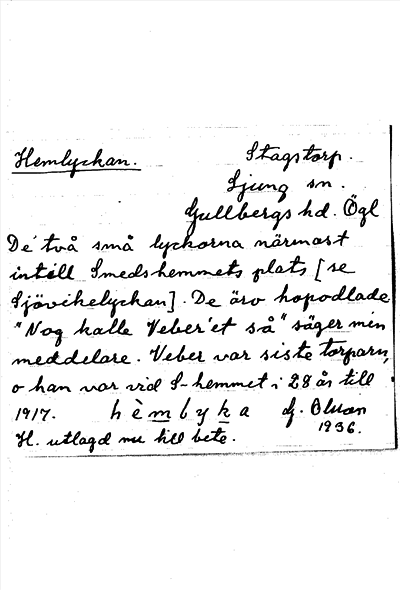 Hemlyckan. Stagstorp.
Ljung sn.
Gullbergs hd. Ögl
De två små lyckorna närmast
intill Smedshemmets plats [se
Sjövikelyckan]. De äro hopodlade
"Nog kalle Veber'et så" säger min
meddelare. Veber var siste torparn,
o han var vid S-hemmet i 28 år till
1917. hèmlyka G.
1936.
H. utlagd nu till bete.